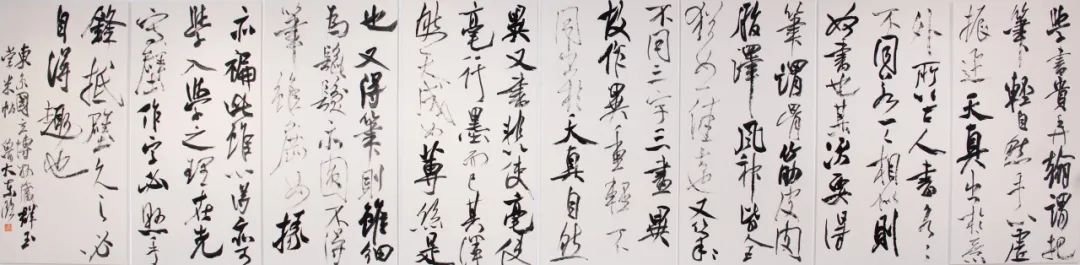 學書貴弄翰謂把
筆輕自然手心虛
振迅天真出於意
外所以古人書各各
不同若一一相似則
奴書也其次要得
筆謂骨筋皮肉
脂澤風神皆全
猶如一佳士也又筆筆
不同三字三畫異
故作異重輕不
同出於天真自然
異又書非以使毫使
毫行墨而已其渾
然天成如蓴絲是
也又得筆則雖細
為髭髮亦圓不得
筆雖麤如椽
亦褊此雖心得亦可
學入學之理在先
寫壁作字必懸手
鋒抵壁久之必
自得趣也
東京國立博物館群玉
堂米帖 魯大東臨